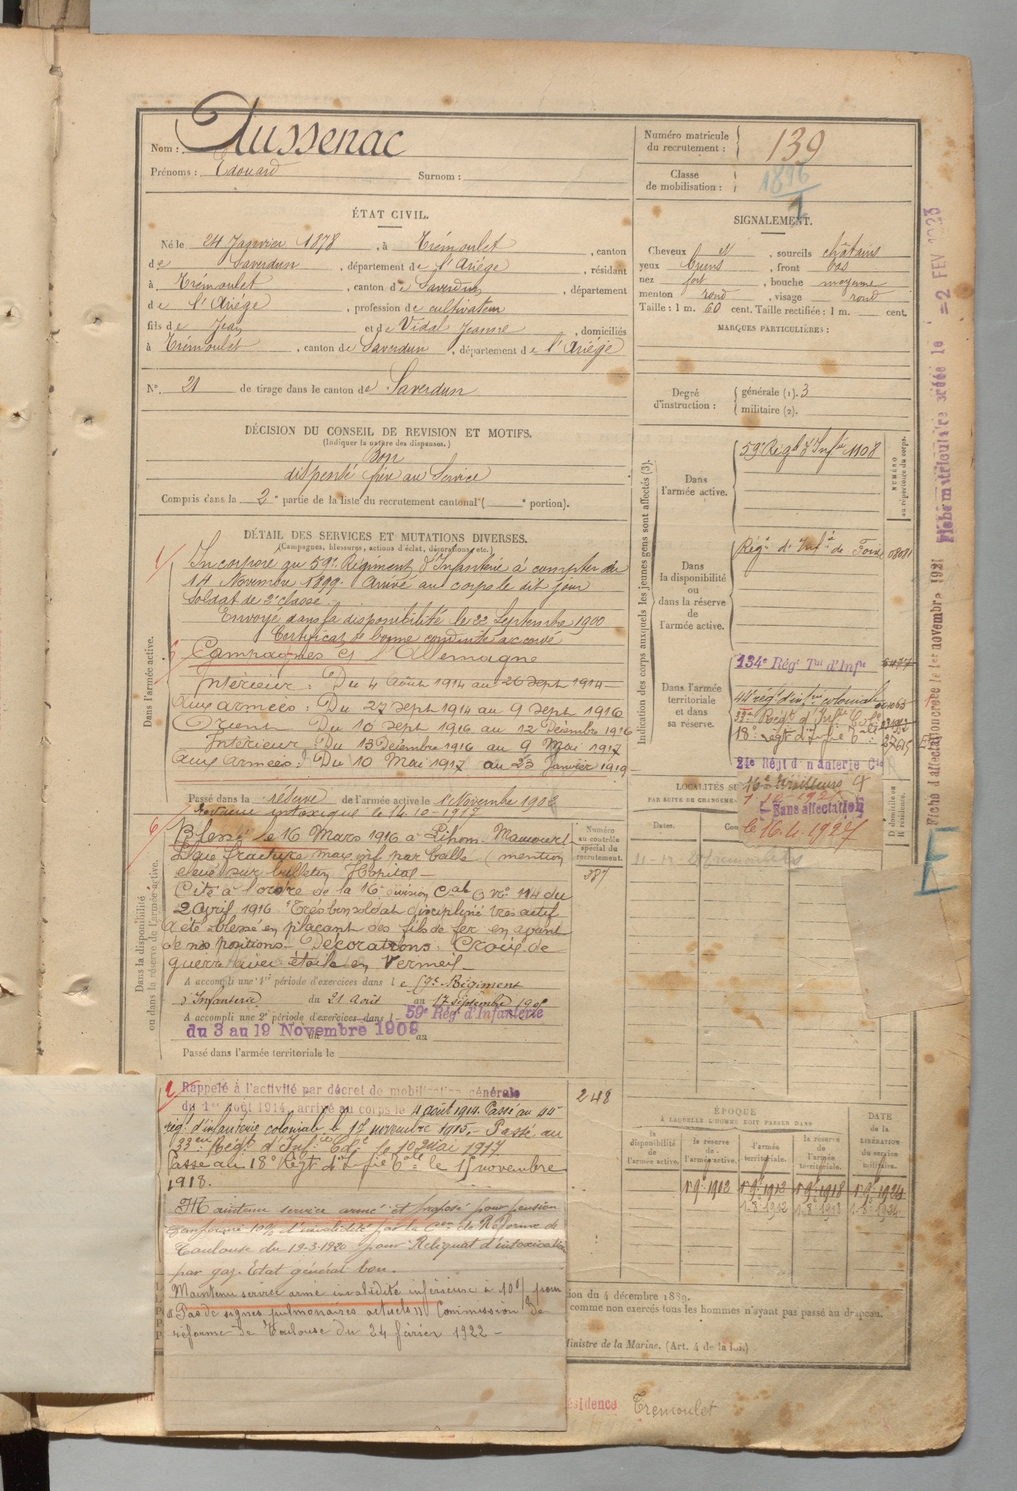 Nom : Aussenac
Prénoms : Edouard Surnom :
Numéro matricule du recrutement : 139
Classe de mobilisation : 1896
ÉTAT CIVIL.
Né le 24 Janvier 1878, à Trémoulet, canton
de Saverdun, département de l'Ariége, résidant
à Trémoulet, canton de Saverdun, département
de l'Ariége, profession de cultivateur
fils de Jean et de Vidal Jeanne, domiciliés
à Trémoulet, canton de Saverdun, département de l'Ariége
SIGNALEMENT.
Cheveux et, sourcils châtains
yeux bruns, front bas
nez fort, bouche moyenne
menton rond, visage rond
Taille : 1 m. 60 cent. Taille rectifiée : 1 m. cent.
MARQUES PARTICULIÈRES :
N°. 21 de tirage dans le canton de Saverdun
Degré d'instruction : générale (1). 3
militaire (2).
DÉCISION DU CONSEIL DE REVISION ET MOTIFS.
(Indiquer la nature des dispenses.)
Bon
dispensé frère au Service
Compris dans la 2e partie de la liste du recrutement cantonal ( e portion).
DÉTAIL DES SERVICES ET MUTATIONS DIVERSES.
(Campagnes, blessures, actions d'éclat, décorations, etc.)
Dans l'armée active.
Incorporé au 59e Régiment d'Infanterie à compter du
14 Novembre 1899 Arrivé au corps le dit jour
Soldat de 2e classe.
Envoyé dans la disponibilité le 22 Septembre 1900
Certificat de bonne conduite accordé
Campagnes Ct l'Allemagne
Intérieur : Du 4 Août 1914 au 26 Sept 1914
Aux armées : Du 27 Sept 1914 au 9 Sept 1916
Orient Du 10 Sept 1916 au 12 Décembre 1916
Intérieur Du 13 Décembre 1916 au 9 Mai 1917
Aux Armées : Du 10 Mai 1917 au 23 Janvier 1919
Passé dans la réserve de l'armée active le 1 Novembre 1902
intoxiqué le 14-10-1917
Dans la disponibilité
ou dans la réserve de l'armée active.
Blessé le 16 Mars 1916 à Lihons. Maucourt
Plaie fracture max. inf par balle (mention
élevé sur bulletin Hôpital
Cité à l'ordre de la 16e Division Cale O. No 114 du
2 Avril 1916 "Très bon soldat discipliné très actif
A été blessé en plaçant des fils de fer en avant
de nos positions. Décorations. Croix de
guerre avec étoile en Vermeil
A accompli une 1re période d'exercices dans le 59e Régiment
d'Infanterie du 21 Avril au 17 Septembre
A accompli une 2e période d'exercices dans l 59e Rég d'Infanterie
du 3 au 19 Novembre 1909
du au
Passé dans l'armée territoriale le
Rappelé à l'activité par décret de mobilisation générale
du 1er Août 1914, arrivé au corps le 4 août 1914. Passé au 44e
régt d'infanterie coloniale le 17 novembre 1915. Passé au
33eme Régt d'Infie Cole le 10 Mai 1917
Passé au 18e Régt d'Infie Cale le 15 novembre
1918.
Maintenu service armé et proposé pour pension
temporaire 10% d'invalidité par la Con de Réforme de
Toulouse du 19-3-1920 pour Reliquat d'intoxication
par gaz. État général bon.
Maintenu service armé invalidité inférieure à 10% pour
"Pas de signes pulmonaires actuels" Commission de
réforme de Toulouse du 24 février 1922
Indication des corps auxquels les jeunes gens sont affectés (3).
NUMÉRO
au répertoire du corps.
Dans l'armée active. 59e Régt d'Infie 1108
Dans la disponibilité ou dans la réserve de l'armée active. Régt d'Infie de Foix
Dans l'armée territoriale et dans sa réserve. 134e Régt Tal d'Infie
44e régt d'infie coloniale
33e Régt d'Infie Cole
18e régt d'Infie Cale 27615
21e Régt d'Infanterie Cle
16e Tirailleurs
Sans affectation
le 16.4.1927
LOCALITÉS SU
PAR SUITE DE CHANGEME
Dates. Co
D domicile ou
R résidence.
Numéro
au contrôle
spécial du
recrutement.
387
248
Trémoulet
ÉPOQUE
À LAQUELLE L'HOMME DOIT PASSER DANS
la disponibilité de l'armée active.
la réserve de l'armée active.
l'armée territoriale.
la réserve de l'armée territoriale.
DATE de la LIBÉRATION du service militaire.
1.8.1912 1.8.1918 1.8.1924
ion du 4 décembre 1889.
comme non exercés tous les hommes n'ayant pas passé au drapeau.
Ministre de la Marine. (Art. 4 de la loi.)
ésidence Trémoulet
Fiche d'affectation créée le 1er novembre 1921
Fiche matriculaire créée le = 2 FEV 1923